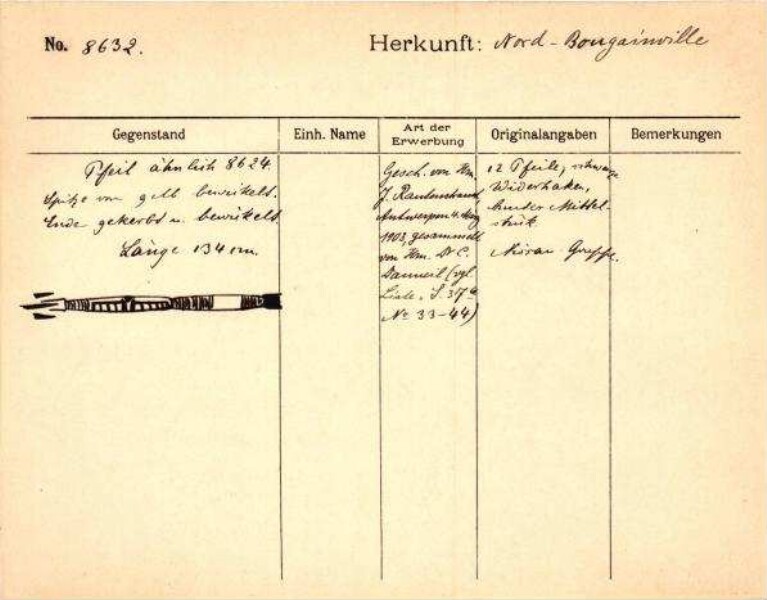 No. 8632.
Herkunft: Nord-Bougainville
Gegenstand
Einh. Name
Art der Erwerbung
Originalangaben
Bemerkungen
Pfeil ähnlich 8624.
Spitze von gelb bewickelt.
Ende gekerbt u. bewickelt
Länge 134 cm.
Gesch. von Hrn.
J. Rautenstrauch,
Antwerpen 4. May
1903, gesammelt
von Hrn. Dr C.
Danneil (vgl.
Liste, S. 37a
No 33-44)
12 Pfeile, schwarze
Widerhaken,
bunter Mittel-
stück
Gruppe.